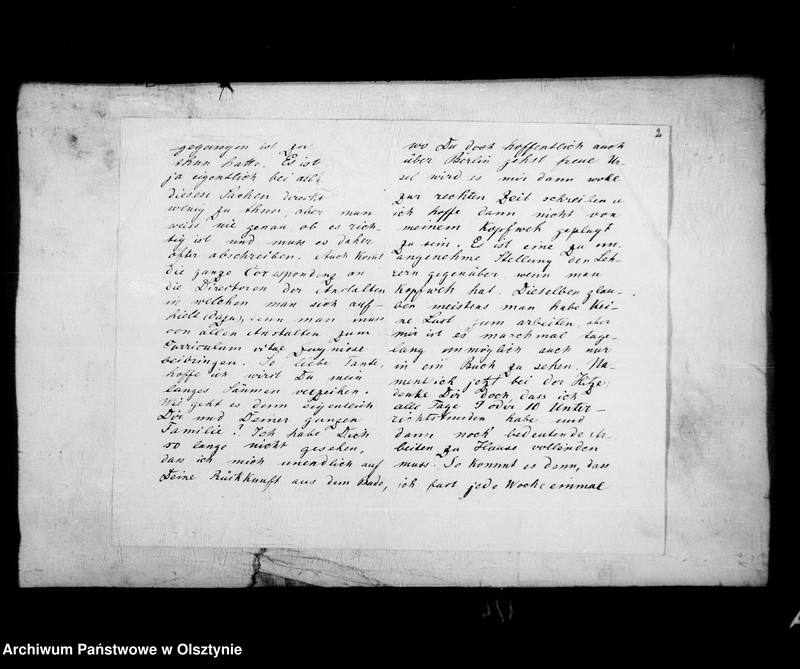 2
gegangen ist zu
thun hatte. Es ist
ja eigentlich bei all
diesen Sachen direkt
wenig zu thun, aber man
weis nie genau ob es rich-
tig ist und muss es daher
öfter abschreiben. Auch komt
die ganze Correspondenz an
die Direktoren der Anstalten
in welchen man sich auf-
hielt dazu, denn man muss
von allen Anstalten zum
Curriculum vitae Zeugnisse
beibringen. So liebe Tante,
hoffe ich wirst Du mein
langes Säumen verzeihen.
Wie geht es denn eigentlich
Dir und Deiner ganzen
Familie? Ich habe Dich
so lange nicht gesehen,
dass ich mich unendlich auf
Deine Rückkunft aus dem Bade,
wo Du doch hoffentlich auch
über Berlin gehst freue Ur-
sel wird es mir dann wohl
zur rechten Zeit schreiben u
ich hoffe dann nicht von
meinem Kopfweh geplagt
zu sein. Es ist eine zu un-
angenehme Stellung den Leh-
rern gegenüber, wenn man
Kopfweh hat. Dieselben glau-
ben meistens man habe kei-
ne Lust zum arbeiten, aber
mir ist es manchmal tage-
lang unmöglich auch nur
in ein Buch zu sehen. Na-
mentlich jetzt bei der Hitze;
denke Dir doch, dass ich
alle Tage 9 oder 10 Unter-
richtsstunden habe und
dann noch bedeutende Ar-
beiten zu Hause vollenden
muss. So kommt es dann, dass
ich fast jede Woche einmal
Archiwum Państwowe w Olsztynie